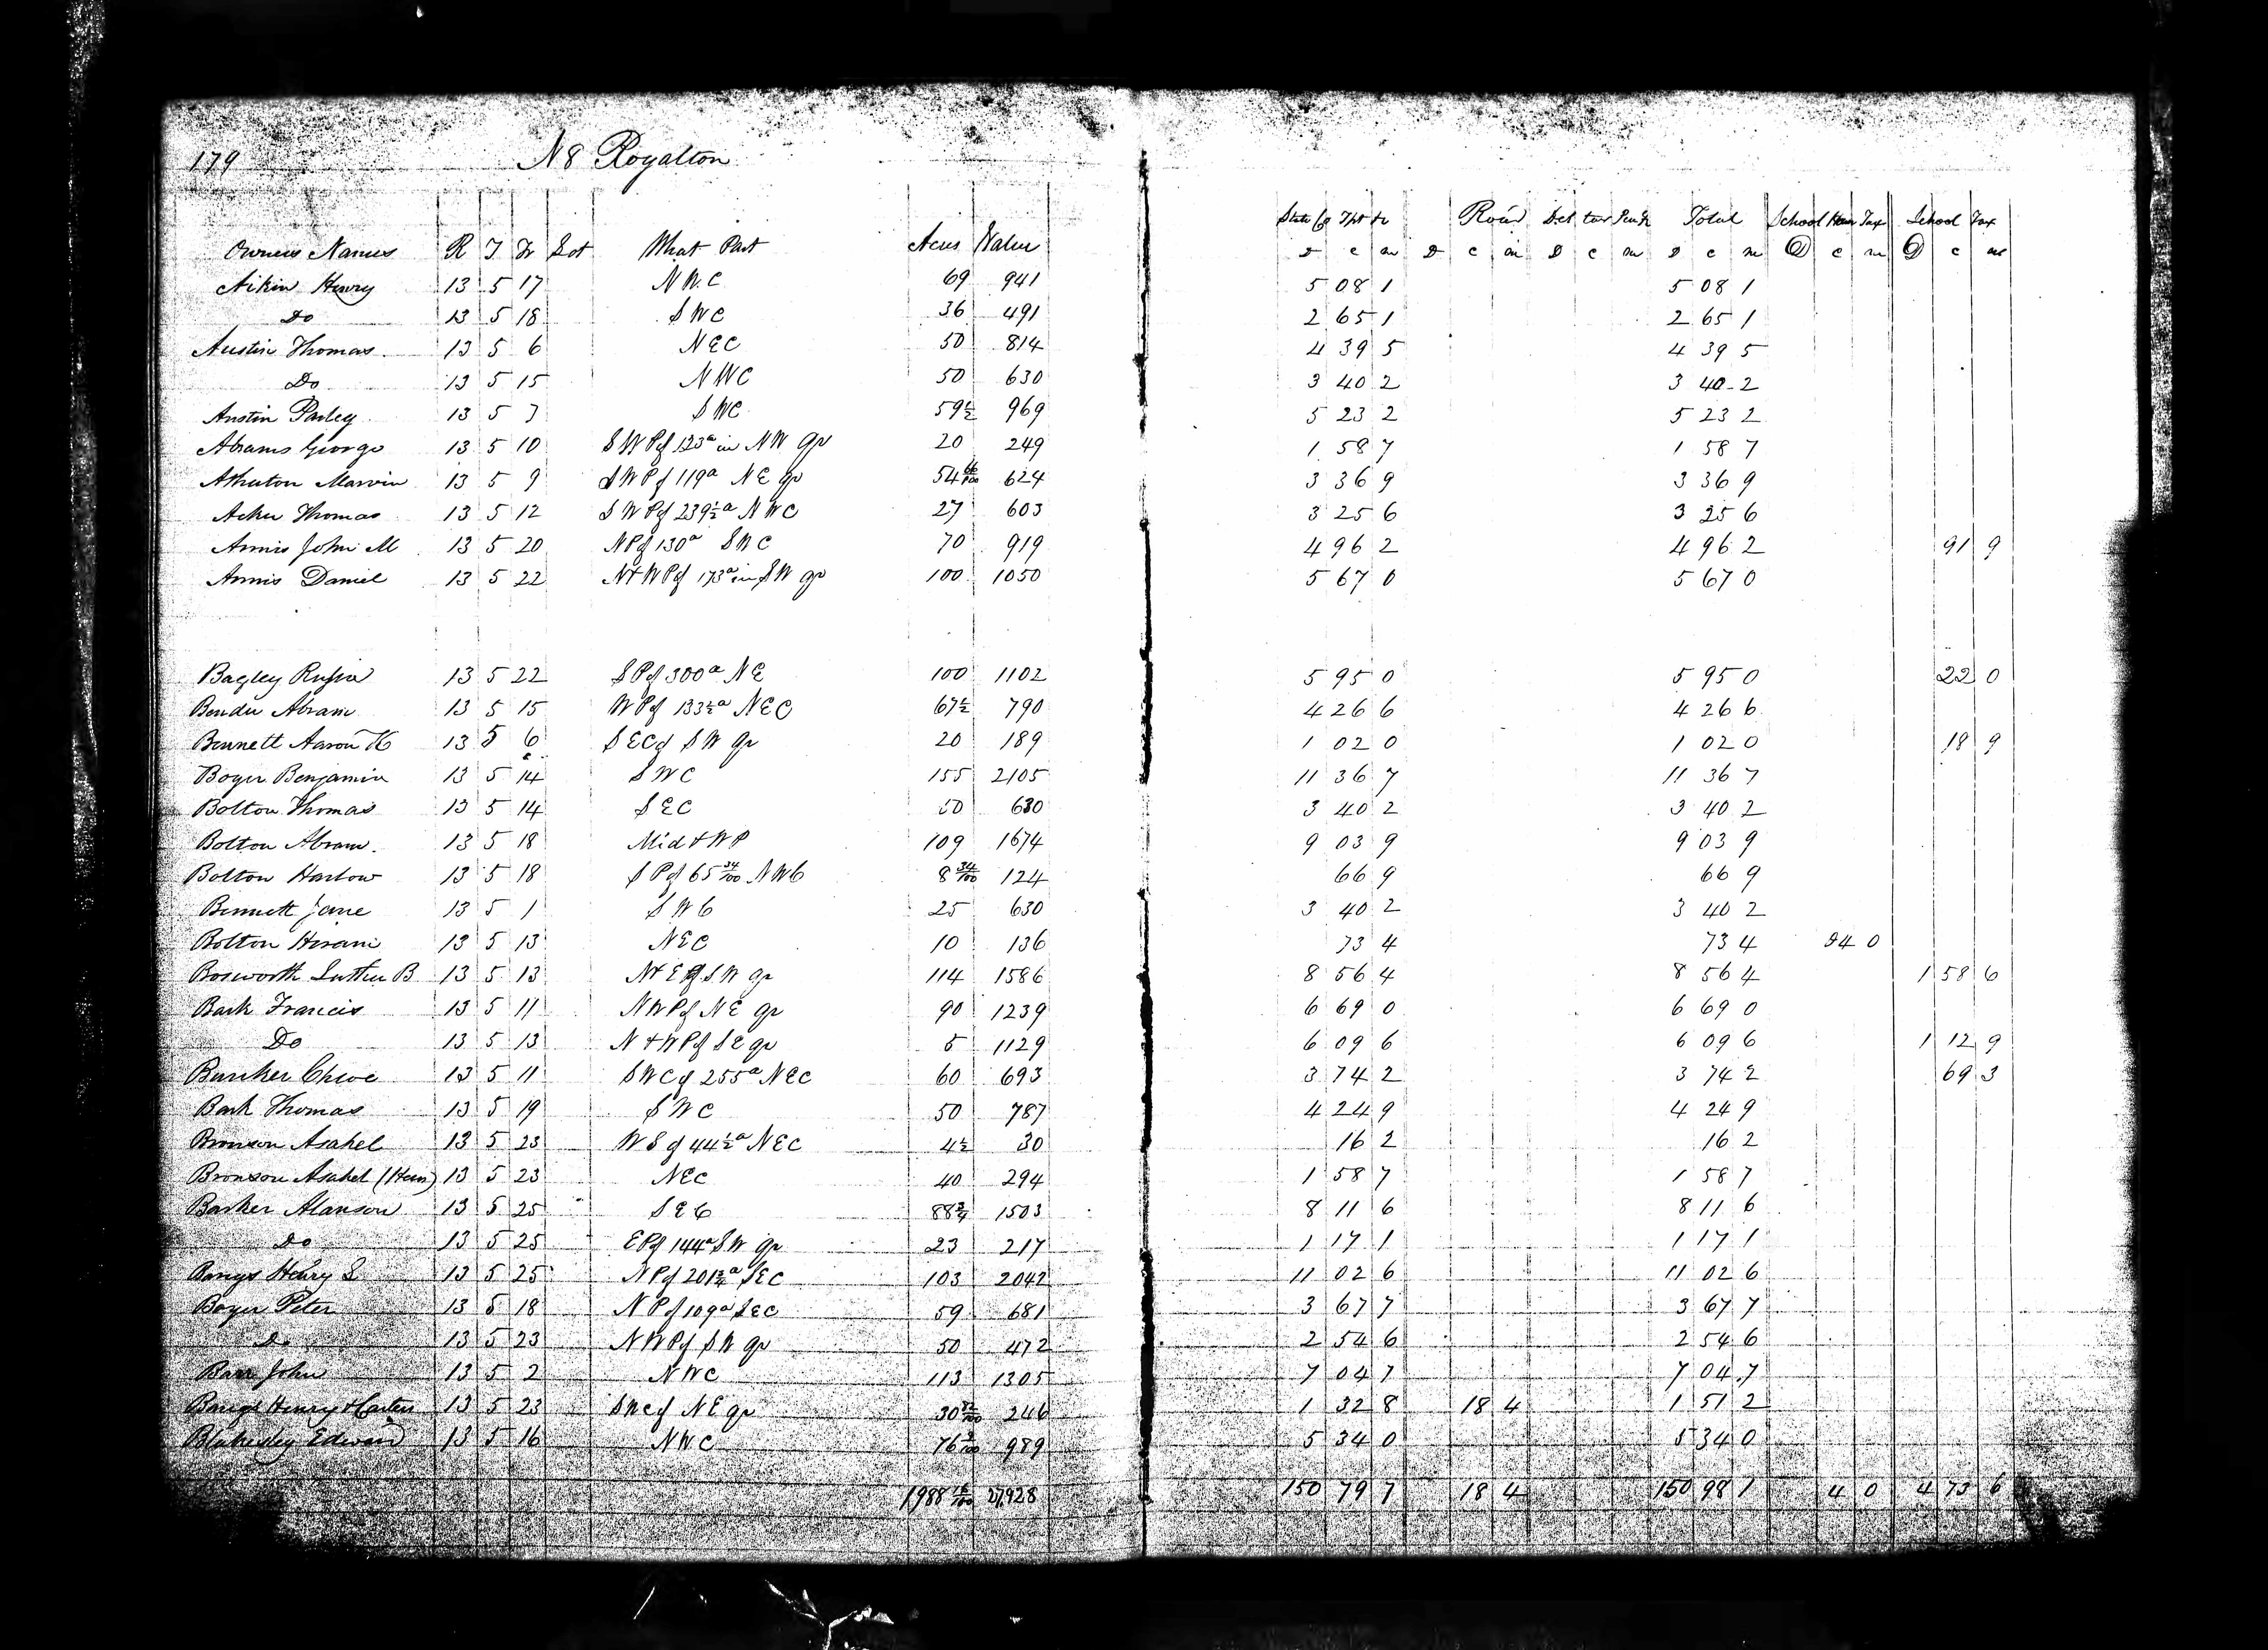 179 N8 Royalton
State Co Tht &c Road Del tax Total School House Tax School Tax
Owners Names R T Tr Lot What Part Acres Value D c m D c m D c m D c m D c m D c m
Aikin Henry 13 5 17 N.W.C 69 941 5 08 1 5 08 1
Do 13 5 18 S W C 36 491 2 65 1 2 65 1
Austin Thomas 13 5 6 N E C 50 814 4 39 5 4 39 5
Do 13 5 15 N W C 50 630 3 40 2 3 40 2
Austin Parley 13 5 7 S W C 59½ 969 5 23 2 5 23 2
Abrams George 13 5 10 S W P of 123a in N W qr 20 249 1 58 7 1 58 7
Atherton Marvin 13 5 9 S W P of 119a N E qr 54 624 3 36 9 3 36 9
Acker Thomas 13 5 12 S W P of 239½a N W C 27 603 3 25 6 3 25 6
Annis John M 13 5 20 N P of 130a S W C 70 919 4 96 2 4 96 2 91 9
Annis Daniel 13 5 22 N & W P of 173a in S W qr 100 1050 5 67 0 5 67 0
Bagley Rufus 13 5 22 S P of 300a N E 100 1102 5 95 0 5 95 0 22 0
Bender Abram 13 5 15 W P of 133½a N E C 67½ 790 4 26 6 4 26 6
Bennett Aaron K 13 5 6 S E C of S W qr 20 189 1 02 0 1 02 0 18 9
Boyer Benjamin 13 5 14 S W C 155 2105 11 36 7 11 36 7
Bolton Thomas 13 5 14 S E C 50 630 3 40 2 3 40 2
Bolton Abram 13 5 18 Mid & W P 109 1674 9 03 9 9 03 9
Bolton Harlow 13 5 18 S P of 65 34/100 N W C 8 34/100 124 66 9 66 9
Bennett Jane 13 5 1 S W C 25 630 3 40 2 3 40 2
Bolton Hiram 13 5 13 N E C 10 136 73 4 73 4 4 0
Bosworth Luther B 13 5 13 N & E P of S W qr 114 1586 8 56 4 8 56 4 1 58 6
Bark Francis 13 5 11 N W P of N E qr 90 1239 6 69 0 6 69 0
Do 13 5 13 N & W P of S E qr 5 1129 6 09 6 6 09 6 1 12 9
Bunker Chloe 13 5 11 S W C of 255a N E C 60 693 3 74 2 3 74 2 69 3
Bark Thomas 13 5 19 S W C 50 787 4 24 9 4 24 9
Bronson Asahel 13 5 23 W S of 44½a N E C 4½ 30 16 2 16 2
Bronson Asahel (Heirs) 13 5 23 N E C 40 294 1 58 7 1 58 7
Barker Alanson 13 5 25 S E C 88¾ 1503 8 11 6 8 11 6
Do 13 5 25 E P of 144a S W qr 23 217 1 17 1 1 17 1
Bangs Henry S 13 5 25 N P of 201½a S E C 103 2042 11 02 6 11 02 6
Boyer Peter 13 5 18 N P of 109a S E C 59 681 3 67 7 3 67 7
Do 13 5 23 N W P of S W qr 50 472 2 54 6 2 54 6
Barr John 13 5 2 N W C 113 1305 7 04 7 7 04 7
Bangs Henry & Carters 13 5 23 S W C of N E qr 30 246 1 32 8 18 4 1 51 2
Blakesley Edward 13 5 16 N W C 76 3/100 989 5 34 0 5 34 0
1988 27,928 150 79 7 18 4 150 98 1 4 0 4 73 6